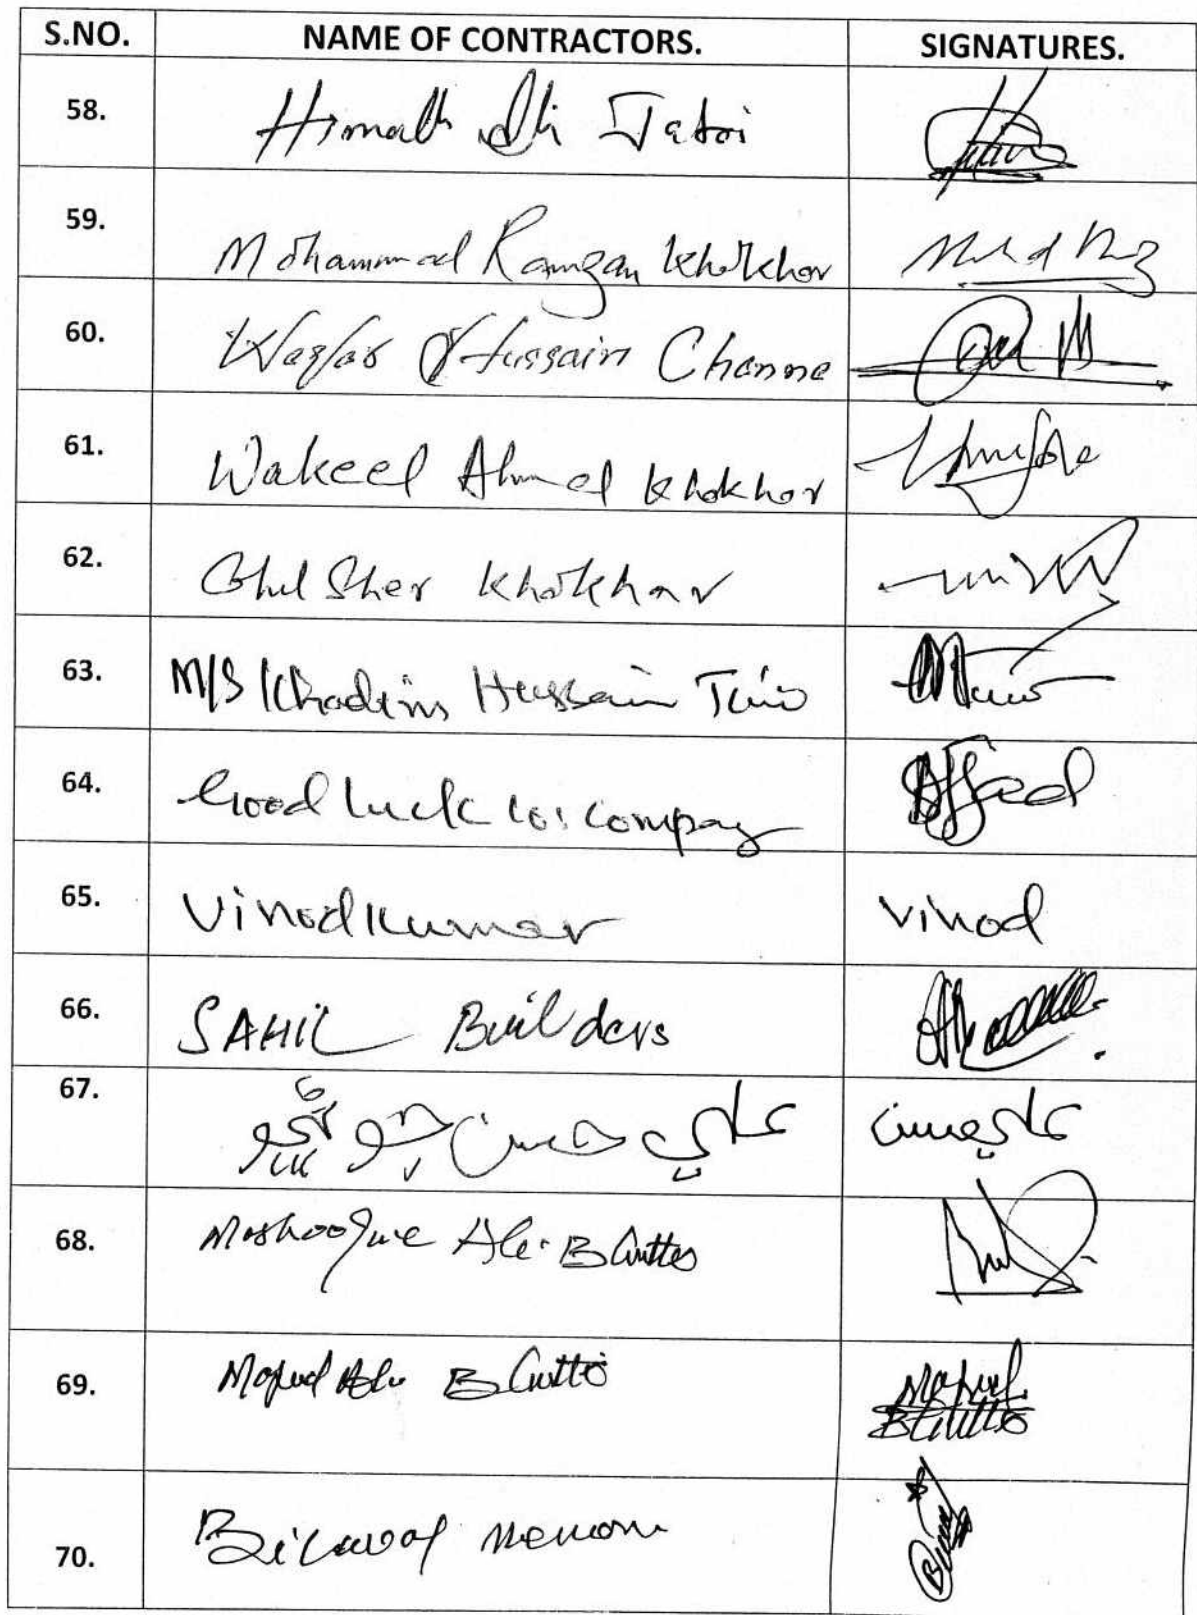 S.NO. NAME OF CONTRACTORS. SIGNATURES.
58. Himath Ali Jatoi
59. Mohammad Ramzan Khokhar
60. Hussain Channa
61. Wakeel Ahmed Khokhar
62. Ghul Sher Khokhar
63. M/S Khadim Hussain Tunio
64. Good luck Co: Compay
65. Vinod Kumar Vinod
66. SAHIL Builders
67. علي حسن علي حسن
68. Mashooque Ali Bhutto
69. Ali Bhutto Bhutto
70. Bilawal Memon